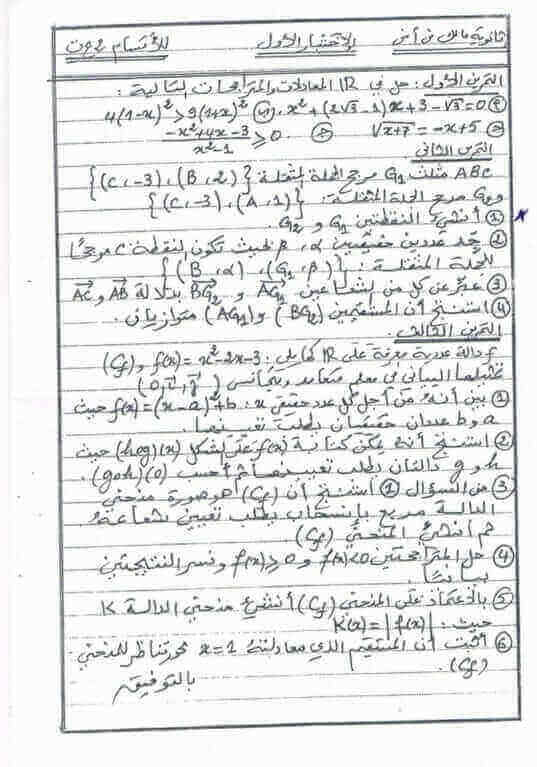 ثانوية مالك بن أنس الإختبار الأول للأقسام 2
التمرين الأول: حل في IR المعادلات والمتراجحات التالية:
4(1-x)² > 9(1+x)² (ب x² + (2√3 - 1)x + 3 - √3 = 0
(-x²+4x-3)/(x²-1) ≥ 0 √(x+7) = -x+5
التمرين الثاني
ABC مثلث G₁ مرجح الجملة المثقلة {(C, -3), (B, 2)}
و G₂ مرجح الجملة المثقلة: {(C, -3), (A, 1)}
① أنشئ النقطتين G₁ و G₂.
② جد عددين حقيقيين α, β بحيث تكون النقطة C مرجحا
للجملة المثقلة: {(B, α), (G₁, β)}
③ عبر عن كل من الشعاعين AG₁ و BG₂ بدلالة AB و AC
④ استنتج أن المستقيمين (BG₂) و (AG₁) متوازيان.
التمرين الثالث
f دالة عددية معرفة على IR كمايلي: f(x) = x² - 2x - 3 و (Cf)
تمثيلها البياني في معلم متعامد ومتجانس (0, i, j)
① بين أنه من أجل كل عدد حقيقي x: f(x) = (x - a)² + b حيث
a و b عددان حقيقيان يطلب تعيينهما.
② استنتج أنه يمكن كتابة f(x) على الشكل (hog)(x) حيث
h و g دالتان يطلب تعيينهما ثم أحسب (goh)(0).
③ من السؤال ① استنتج أن (Cf) هو صورة منحنى
الدالة مربع بانسحاب يطلب تعيين شعاعه
ثم أنشئ المنحنى (Cf).
④ حل المتراجحتين f(x) < 0 و f(x) ≥ 0 وفسر النتيجتين
بيانيا.
⑤ بالاعتماد على المنحنى (Cf) أنشئ منحنى الدالة K
حيث: K(x) = |f(x)|
⑥ أثبت أن المستقيم الذي معادلته x = 1 محور تناظر للمنحنى
(Cf).
بالتوفيق